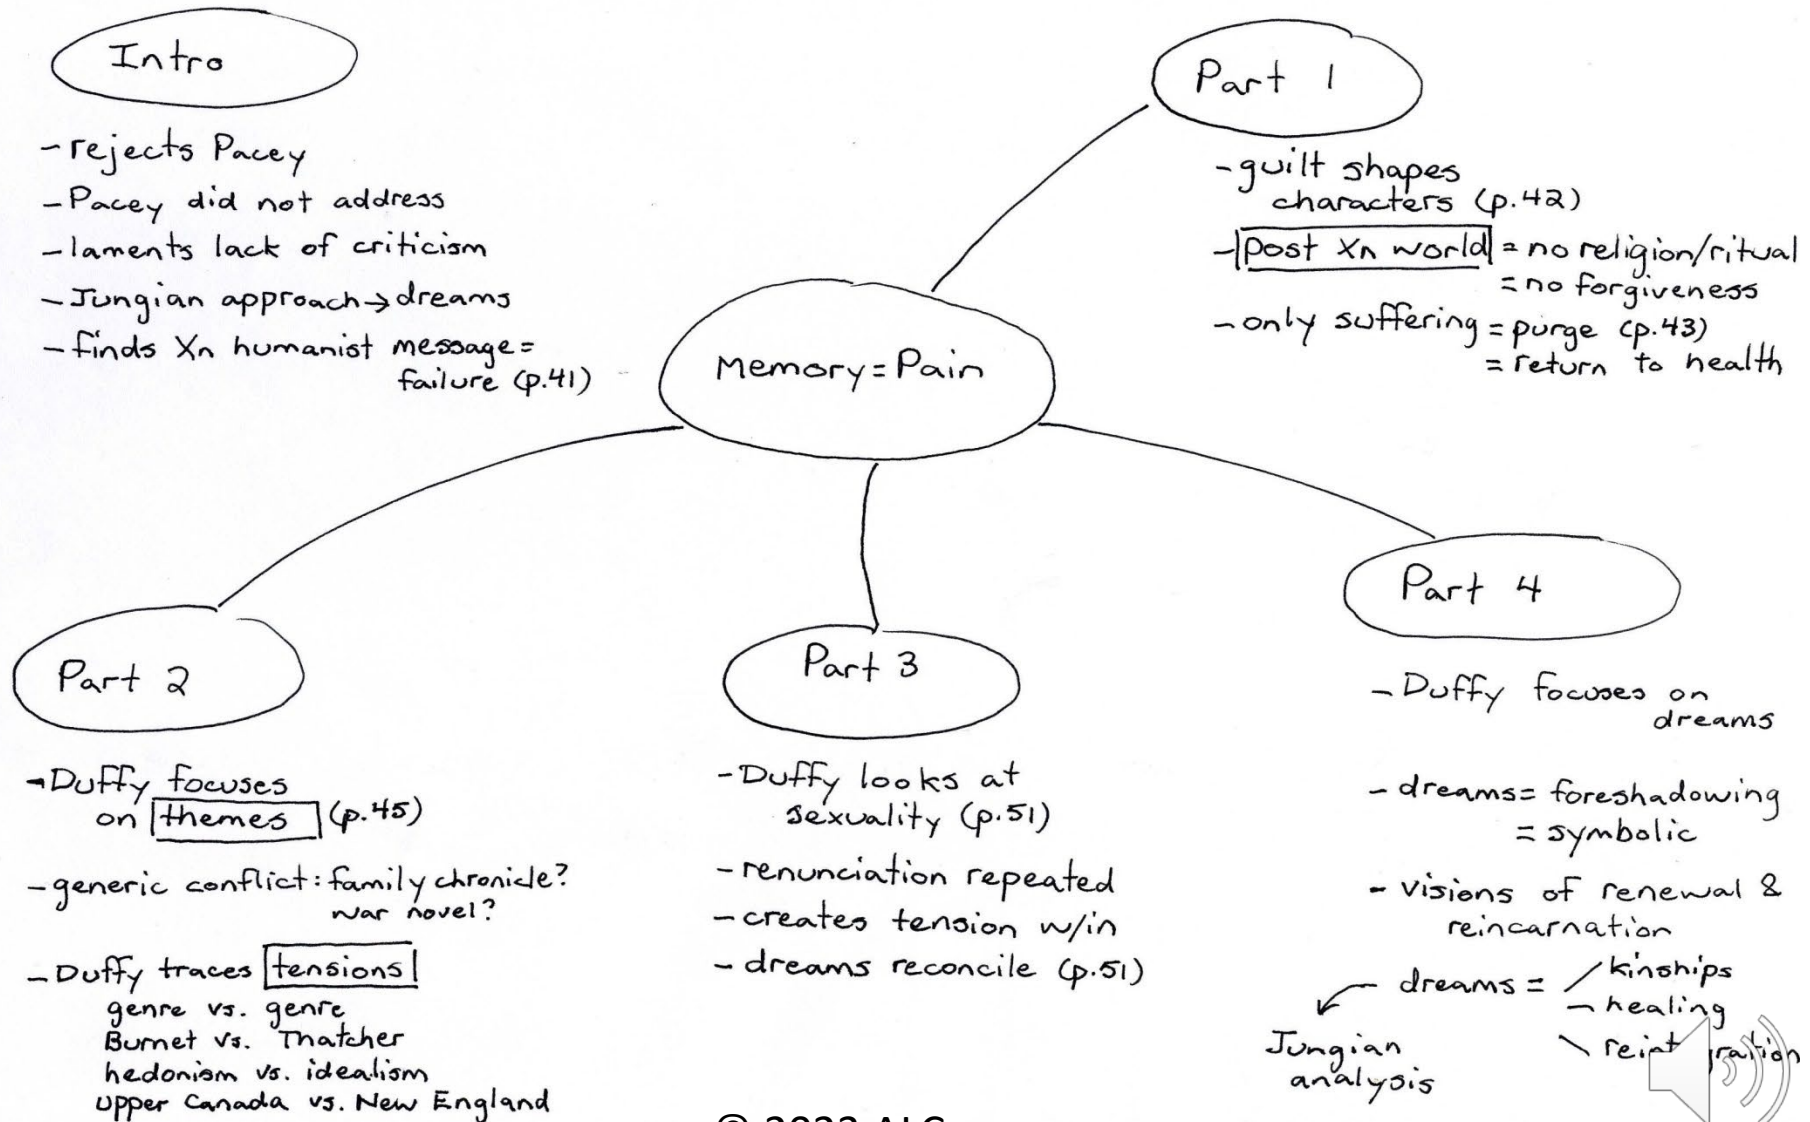 Intro
- rejects Pacey
- Pacey did not address
- laments lack of criticism
- Jungian approach → dreams
- finds Xn humanist message =
failure (p.41)
Part 1
- guilt shapes
characters (p.42)
- post Xn world = no religion/ritual
= no forgiveness
- only suffering = purge (p.43)
= return to health
Memory = Pain
Part 2
- Duffy focuses
on themes (p.45)
- generic conflict: family chronicle?
war novel?
- Duffy traces tensions
genre vs. genre
Burnet vs. Thatcher
hedonism vs. idealism
Upper Canada vs. New England
Part 3
- Duffy looks at
sexuality (p.51)
- renunciation repeated
- creates tension w/in
- dreams reconcile (p.51)
Part 4
- Duffy focuses on
dreams
- dreams = foreshadowing
= symbolic
- visions of renewal &
reincarnation
dreams = kinships
- healing
Jungian
analysis